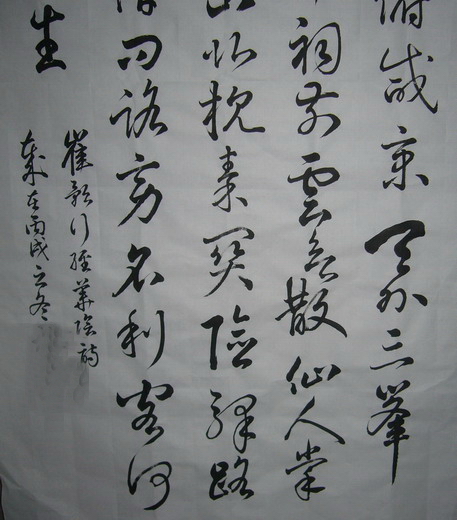 俯咸京天外三峯
祠前雲欲散仙人掌
山北枕秦關險驛路
借問路旁名利客何
生
崔顥行經華陰詩
歲在丙戌立冬